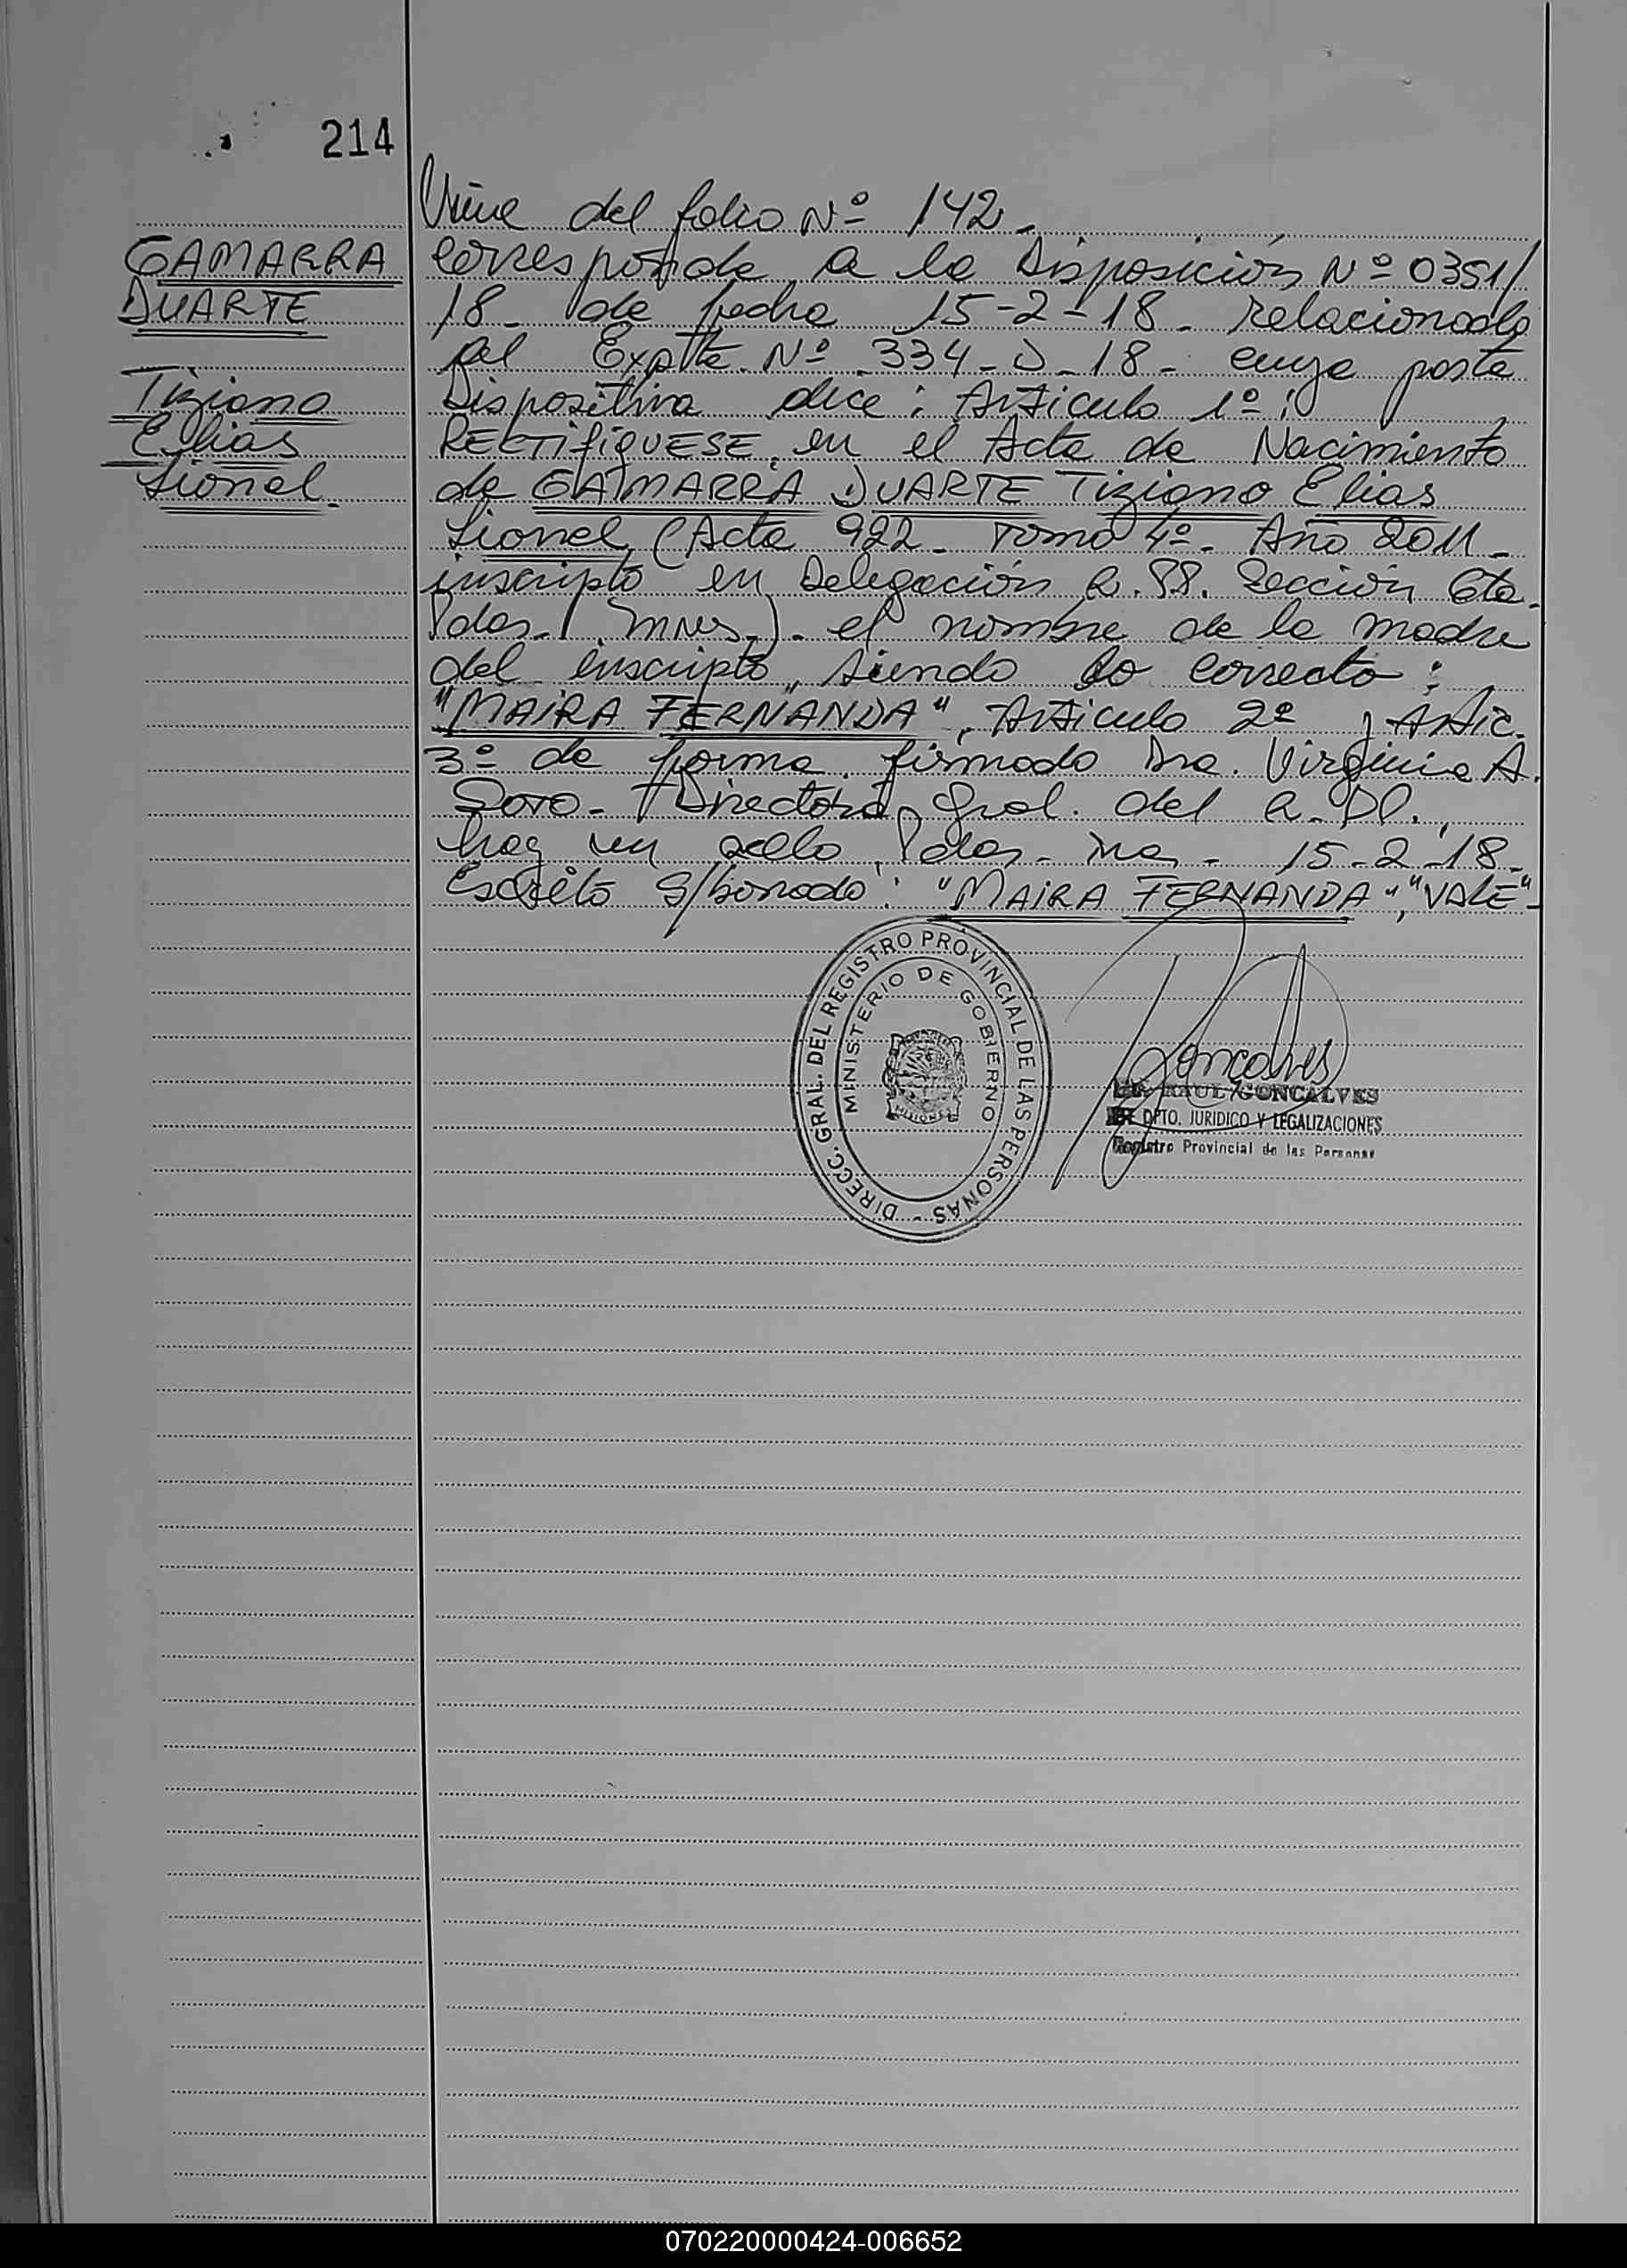 214
Viene del folio Nº 142.-
GAMARRA
DUARTE
Tiziano
Elias
Lionel.
corresponde a la Disposición Nº 0351/
18- de fecha 15-2-18- relacionada
al Expte. Nº 334-D-18- cuya parte
Dispositiva dice: Artículo 1º:
RECTIFIQUESE, en el Acta de Nacimiento
de GAMARRA DUARTE Tiziano Elias
Lionel, (Acta 922- Tomo 4º- Año 2011-
inscripto en Delegación R.PP. Sección 6ta.
Pdas- Mnes.)- el nombre de la madre
del inscripto, siendo lo correcto:
"MAIRA FERNANDA", Artículo 2º y Artic.
3º de forma. firmado Dra. Virginia A.
Directora Gral. del R.PP.,
hay un sello, Pdas- Mnes- 15-2-18-
Escrito S/borrado: "MAIRA FERNANDA", "VALE"-
DIRECC. GRAL. DEL REGISTRO PROVINCIAL DE LAS PERSONAS -
MINISTERIO DE GOBIERNO
MISIONES
Goncalves
RAUL GONCALVES
DPTO. JURIDICO Y LEGALIZACIONES
Registro Provincial de las Personas
070220000424-006652